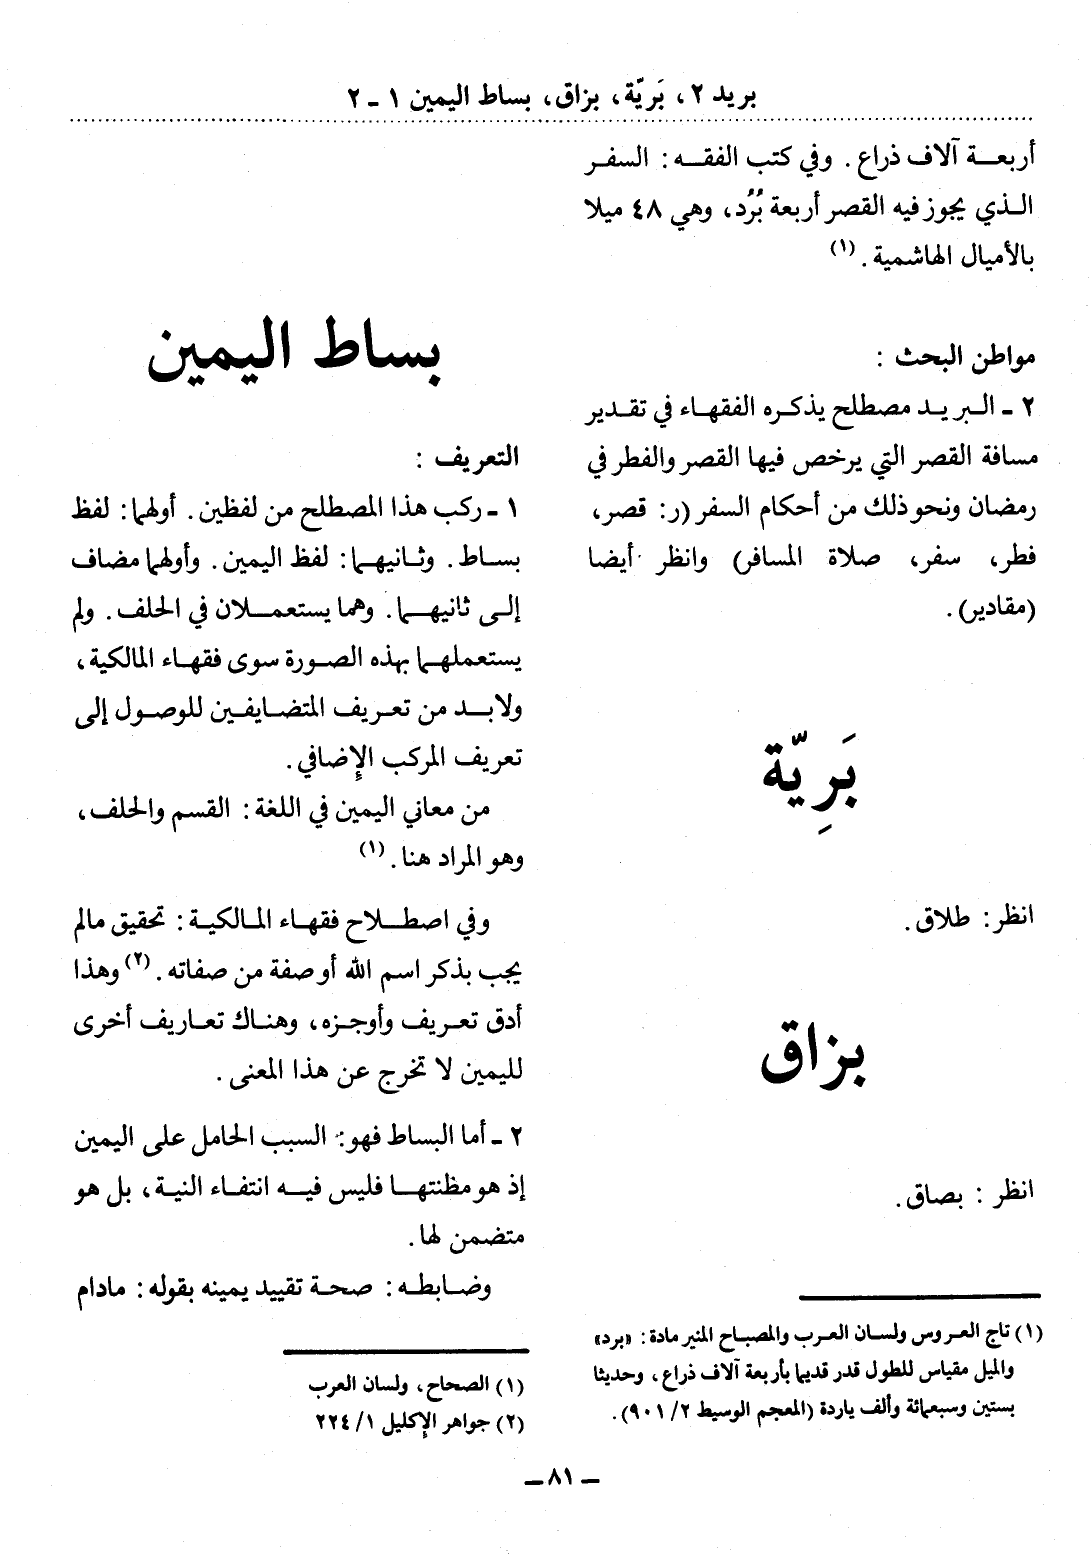 بريد ٢، بَريّة، بزاق، بساط اليمين ١ ـ ٢
أربعة آلاف ذراع. وفي كتب الفقه: السفر
الذي يجوز فيه القصر أربعة بُرُد، وهي ٤٨ ميلا
بالأميال الهاشمية. (١)
مواطن البحث :
٢ ـ البريد مصطلح يذكره الفقهاء في تقدير
مسافة القصر التي يرخص فيها القصر والفطر في
رمضان ونحو ذلك من أحكام السفر (ر: قصر،
فطر، سفر، صلاة المسافر) وانظر أيضا
(مقادير).
بَرِيّة
انظر: طلاق.
بزاق
انظر : بصاق.
(١) تاج العروس ولسان العرب والمصباح المنير مادة: «برد»
والميل مقياس للطول قدر قديما بأربعة آلاف ذراع، وحديثا
بستين وسبعمائة وألف ياردة (المعجم الوسيط ٢/ ٩٠١).
بساط اليمين
التعريف :
١ ـ ركب هذا المصطلح من لفظين. أولهما: لفظ
بساط. وثانيهما: لفظ اليمين. وأولهما مضاف
إلى ثانيهما. وهما يستعملان في الحلف. ولم
يستعملهما بهذه الصورة سوى فقهاء المالكية،
ولابد من تعريف المتضايفين للوصول إلى
تعريف المركب الإضافي.
من معاني اليمين في اللغة: القسم والحلف،
وهو المراد هنا. (١)
وفي اصطلاح فقهاء المالكية: تحقيق مالم
يجب بذكر اسم الله أو صفة من صفاته. (٢) وهذا
أدق تعريف وأوجزه، وهناك تعاريف أخرى
لليمين لا تخرج عن هذا المعنى.
٢ ـ أما البساط فهو: السبب الحامل على اليمين
إذ هو مظنتها فليس فيه انتفاء النية، بل هو
متضمن لها.
وضابطه: صحة تقييد يمينه بقوله: مادام
(١) الصحاح، ولسان العرب
(٢) جواهر الإكليل ١/ ٢٢٤
ـ ٨١ ـ